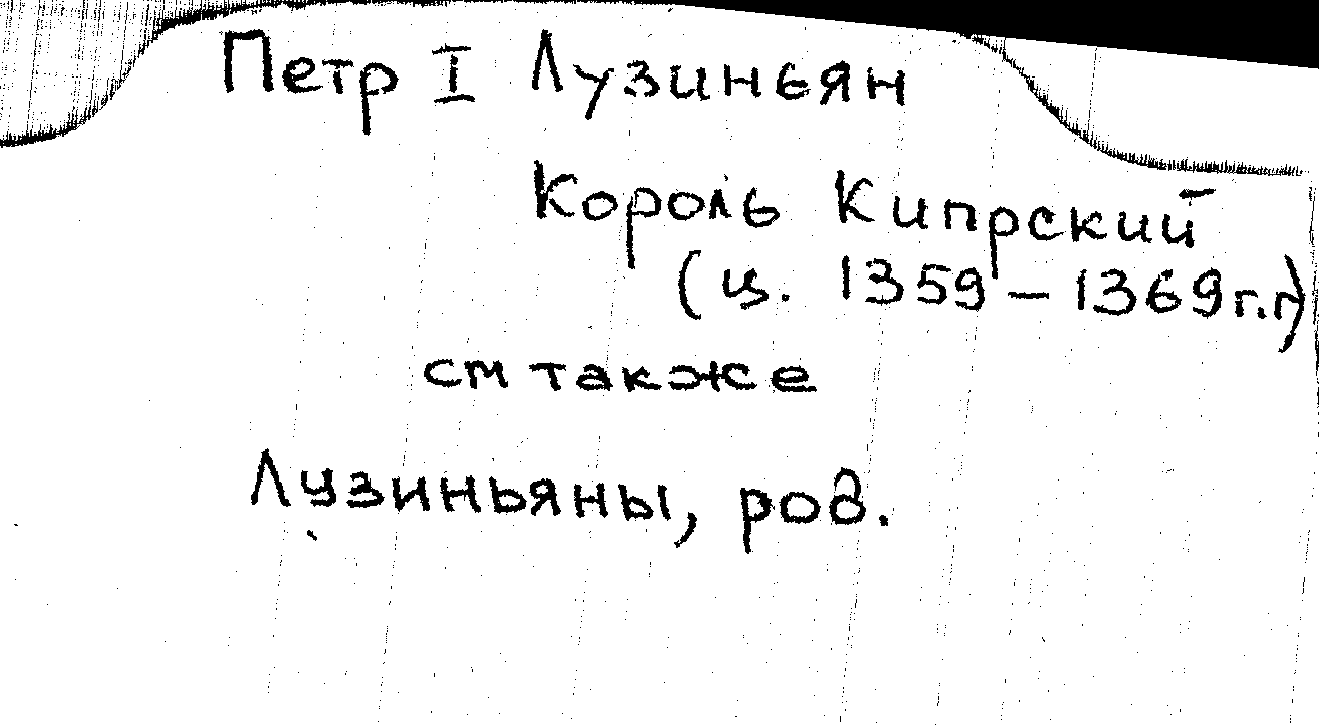 Петр I Лузиньян
Король Кипрский
(ц. 1359 – 1369 г.г)
см также
Лузиньяны, род.